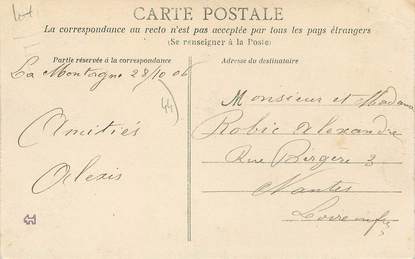 CARTE POSTALE
La correspondance au recto n'est pas acceptée par tous les pays étrangers
(Se renseigner à la Poste)
Partie réservée à la correspondance
La Montagne 28/10 06
44
Amitiés
Alexis
Adresse du destinataire
Monsieur et Madame
Robic Alexandre
Rue Bergère 3
Nantes
Loire infre